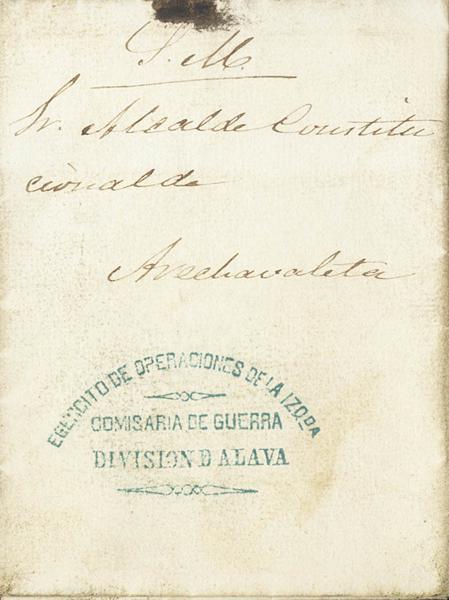 S. M.
Sr. Alcalde Constitu
cional de
Arechavaleta
EGERCITO DE OPERACIONES DE LA IZQDA
COMISARIA DE GUERRA
DIVISION D ALAVA